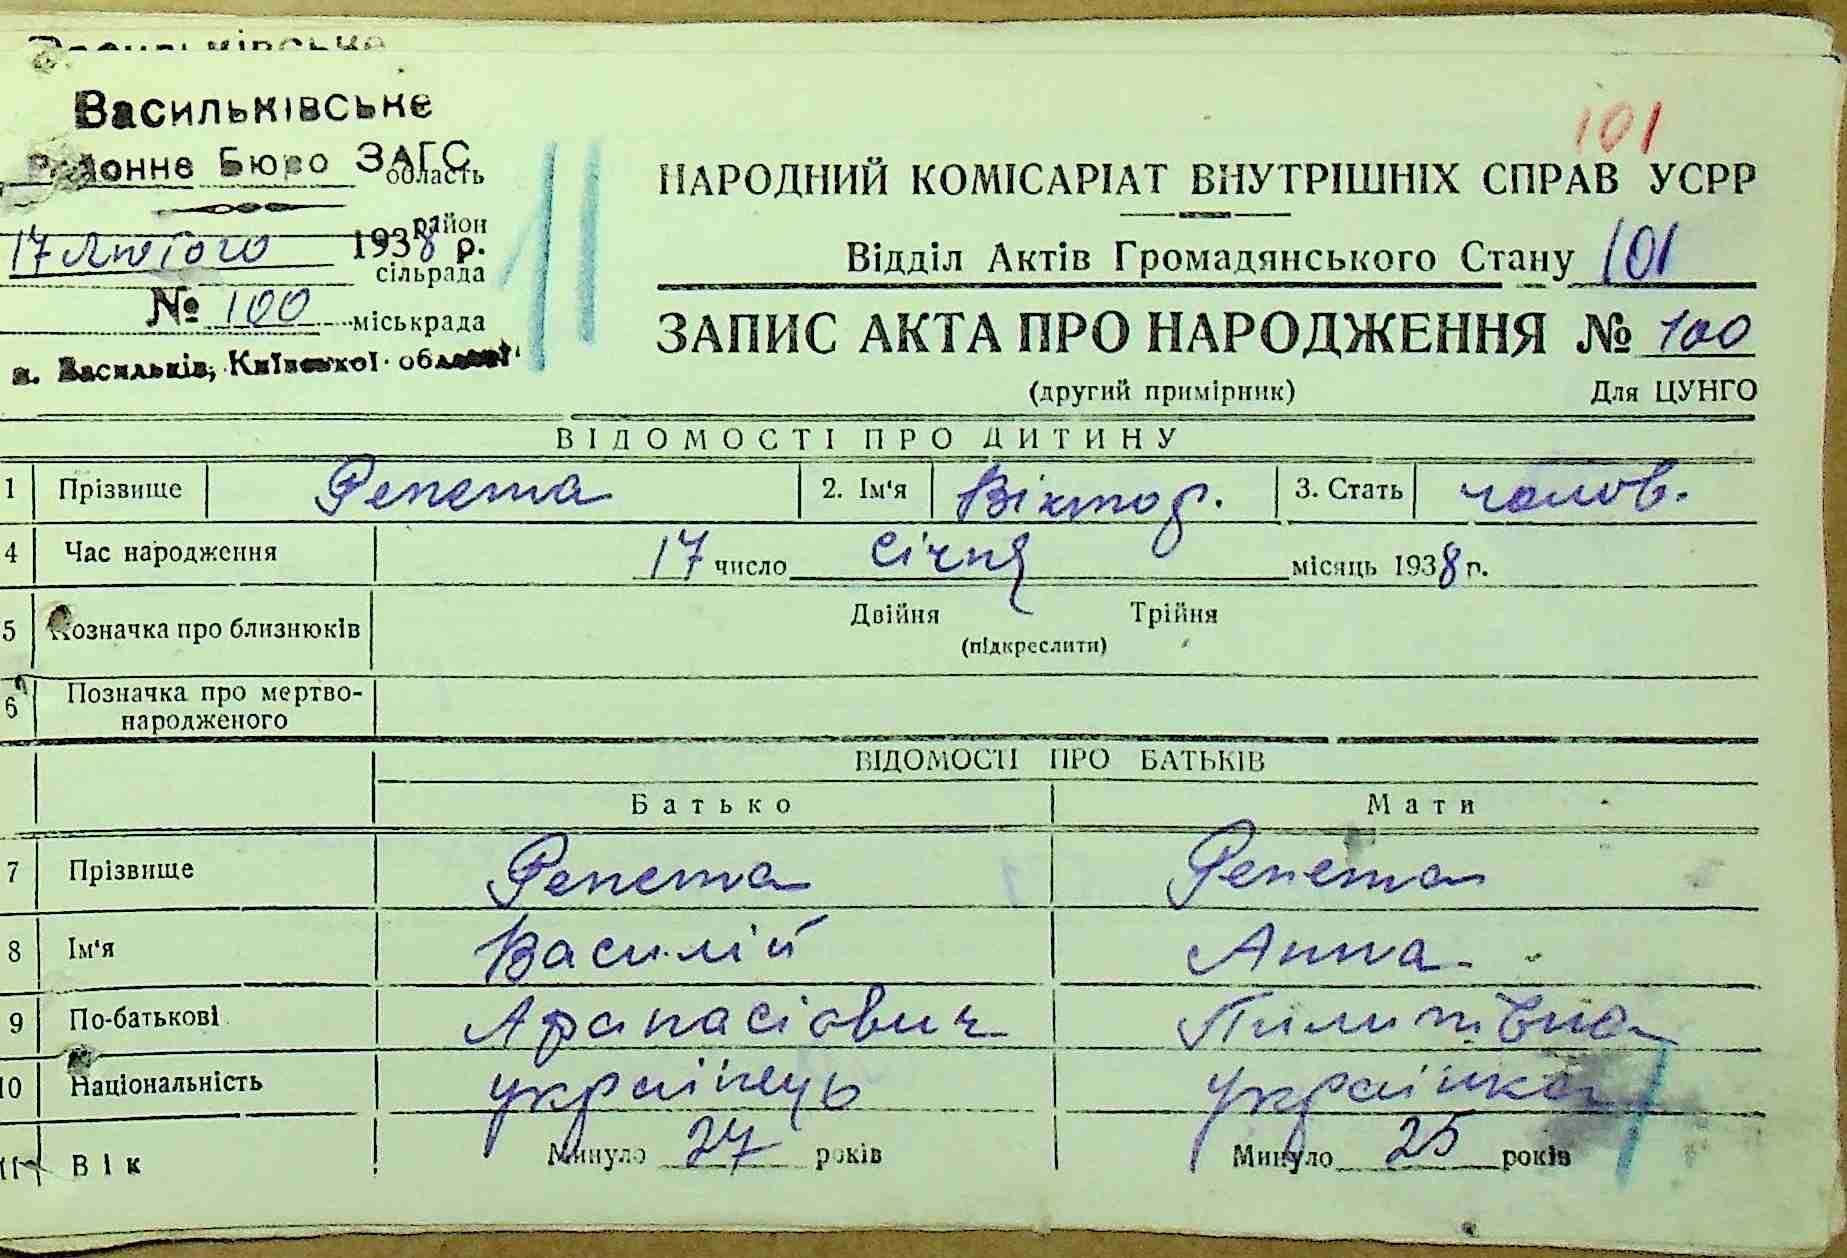 Васильківське
Васильківське
Районне Бюро ЗАГС
область
район
17 Лютого 1938 р.
сільрада
№ 100
міськрада
м. Васильків, Київської області
101
НАРОДНИЙ КОМІСАРІАТ ВНУТРІШНІХ СПРАВ УСРР
Відділ Актів Громадянського Стану 101
ЗАПИС АКТА ПРО НАРОДЖЕННЯ № 100
(другий примірник) Для ЦУНГО
ВІДОМОСТІ ПРО ДИТИНУ
1 Прізвище Репета 2. Ім'я Віктор. 3. Стать чолов.
4 Час народження 17 число Січня місяць 1938 р.
5 Позначка про близнюків Двійня Трійня
(підкреслити)
6 Позначка про мертво-
народженого
ВІДОМОСТІ ПРО БАТЬКІВ
Батько Мати
7 Прізвище Репета Репета
8 Ім'я Василій Анна
9 По-батькові Афанасієвич Пилипівна
10 Національність українець українка
11 Вік Минуло 27 років Минуло 25 років